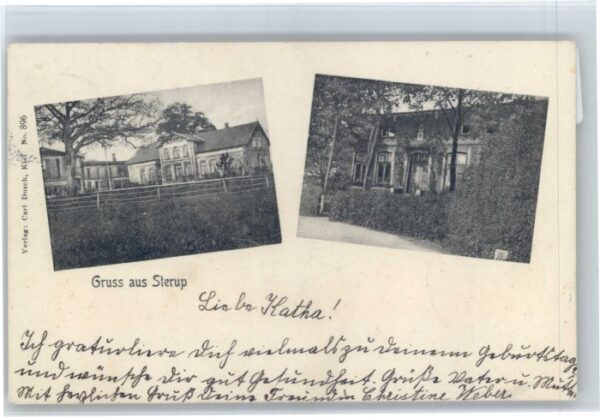 Verlag: Carl Dosch, Kiel No. 896
Gruss aus Sterup
Liebe Katha!
Ich graturliere Dich vielmals zu Deinenn Geburtstag,
und wünsche Dir gut Gesundheit. Grüße Vater u. Mutt
Mit herzlichen Gruß Deine Freundin Christine Weber